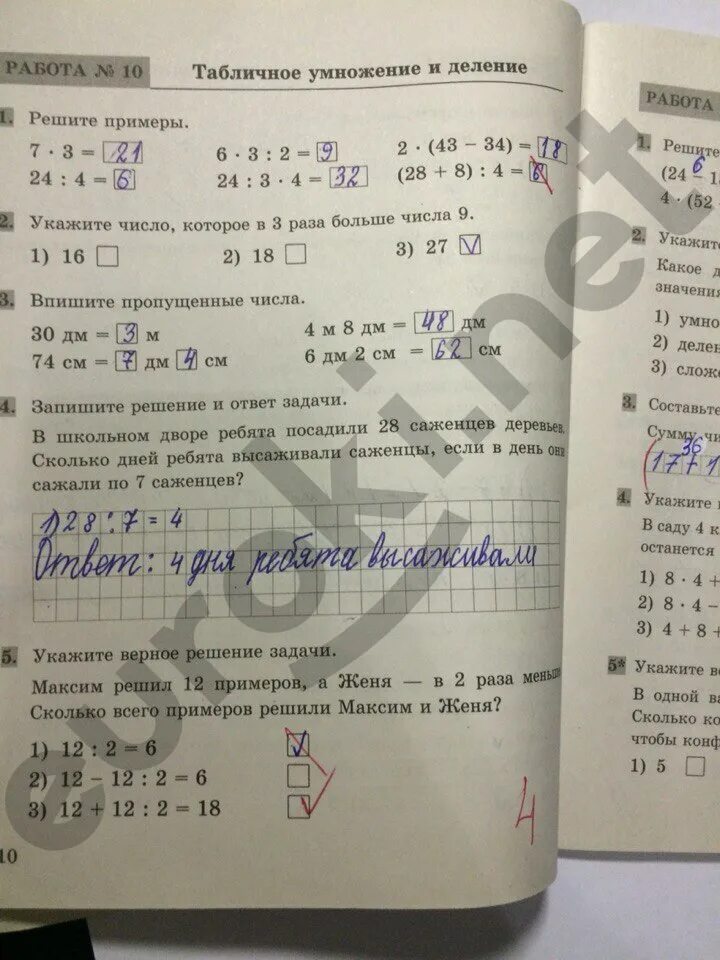 РАБОТА № 10 Табличное умножение и деление
1. Решите примеры.
7 · 3 = 21 6 · 3 : 2 = 9 2 · (43 − 34) = 18
24 : 4 = 6 24 : 3 · 4 = 32 (28 + 8) : 4 = 6
2. Укажите число, которое в 3 раза больше числа 9.
1) 16 2) 18 3) 27 V
3. Впишите пропущенные числа.
30 дм = 3 м 4 м 8 дм = 48 дм
74 см = 7 дм 4 см 6 дм 2 см = 62 см
4. Запишите решение и ответ задачи.
В школьном дворе ребята посадили 28 саженцев деревьев.
Сколько дней ребята высаживали саженцы, если в день они
сажали по 7 саженцев?
1) 28 : 7 = 4
Ответ: 4 дня ребята высаживали
5. Укажите верное решение задачи.
Максим решил 12 примеров, а Женя — в 2 раза меньше
Сколько всего примеров решили Максим и Женя?
1) 12 : 2 = 6 V
2) 12 − 12 : 2 = 6
3) 12 + 12 : 2 = 18 V
4
10
РАБОТА
1. Решите
(24 − 1
6
4 · (52
2. Укажит
Какое д
значения
1) умно
2) делен
3) слож
3. Составьте
Сумму чи
36
(1771
4. Укажите
В саду 4 к
останется
1) 8 · 4 +
2) 8 · 4 −
3) 4 + 8 +
5* Укажите ве
В одной ва
Сколько ко
чтобы конф
1) 5
euroki.net